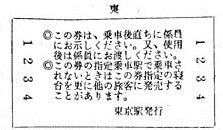 裏
1234
◎この券は、乗車後直ちに係員
にお示しください。又、使用
後は係員にお渡しください。
◎この券の指定乗車駅で乗車さ
れないときはこの券指定の寝
台を更に他の旅客に発売する
ことがあります。
東京駅発行
1234